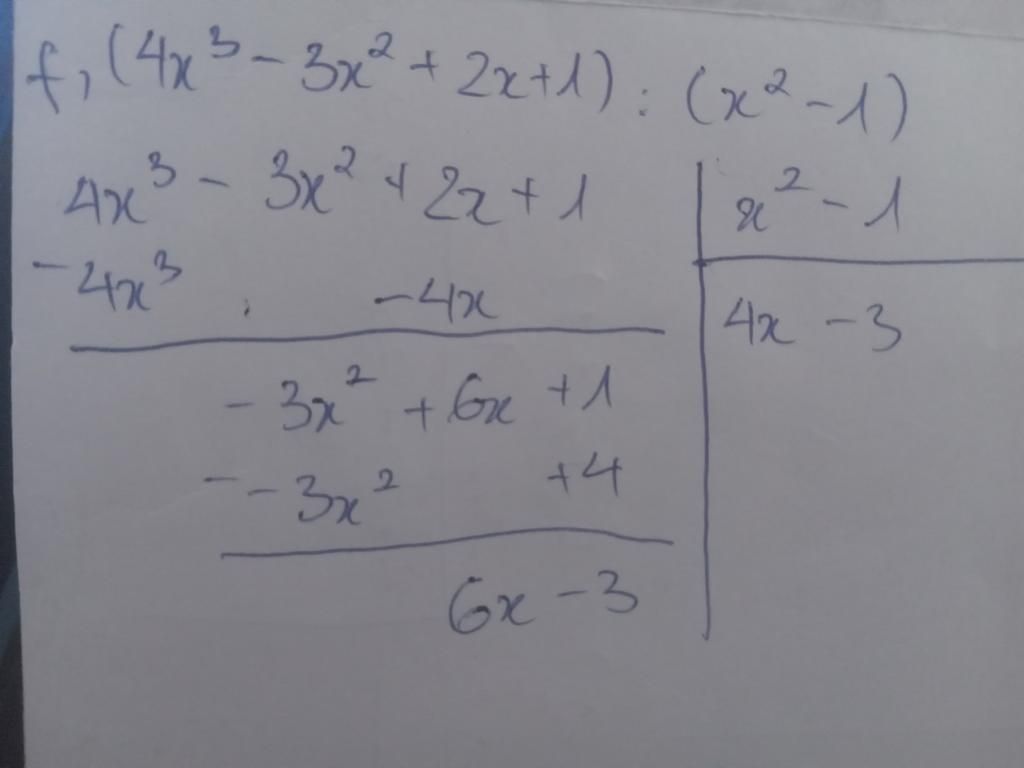 f, (4x³ - 3x² + 2x + 1) : (x² - 1)
4x³ - 3x² + 2x + 1 | x² - 1
- 4x³ - 4x | 4x - 3
- 3x² + 6x + 1
- - 3x² + 4
6x - 3